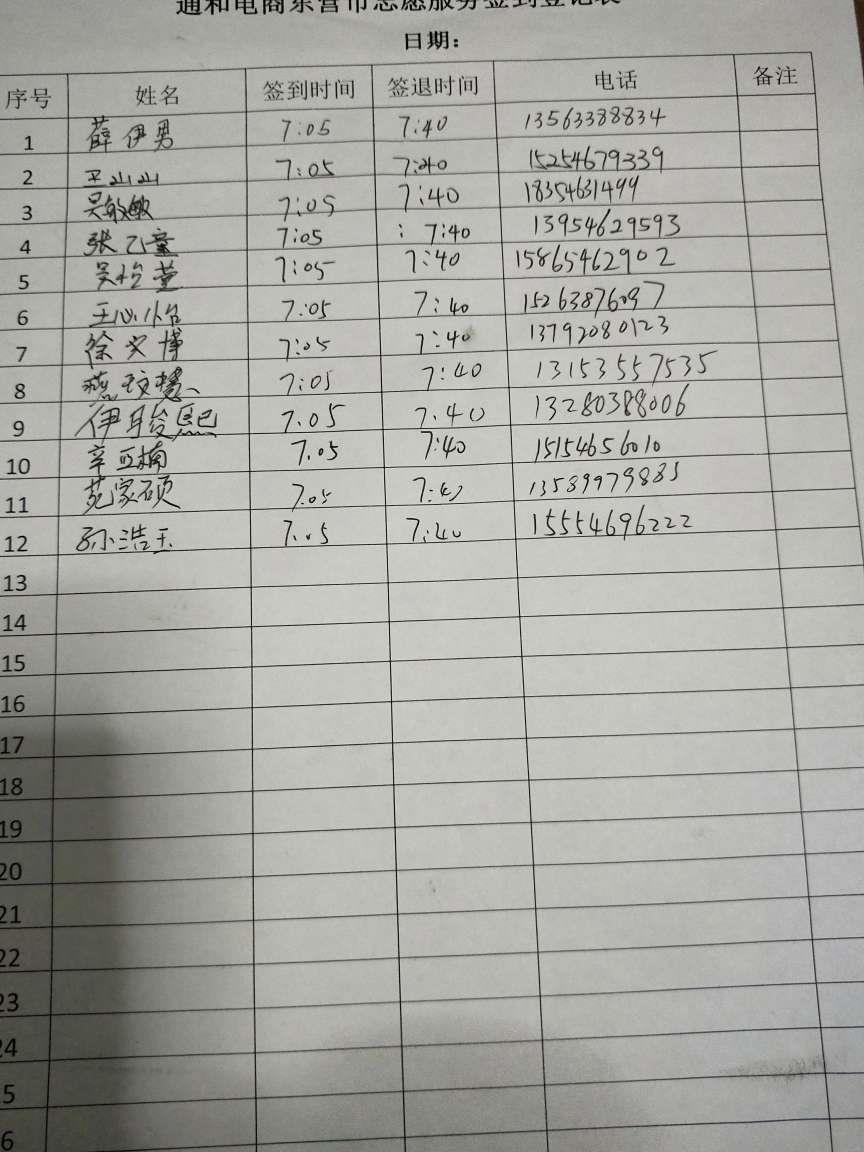 通和电商东营市志愿服务签到登记表
日期：
序号 姓名 签到时间 签退时间 电话 备注
1 薛伊男 7:05 7:40 13563388834
2 王山山 7:05 7:40 15254679339
3 吴敏敏 7:05 7:40 18354631499
4 张乙童 7:05 : 7:40 13954629593
5 吴怡萱 7:05 7:40 15865462902
6 王心怡 7:05 7:40 15263876097
7 徐文博 7:05 7:40 13792080123
8 燕玟慧 7:05 7:40 13153557535
9 伊骏熙 7.05 7.40 13280388006
10 辛亚楠 7.05 7:40 15154656010
11 苑家硕 7.05 7:40 13589979885
12 孙浩玉 7.05 7:40 15554696222
13
14
15
16
17
18
19
20
21
22
23
24
5
6